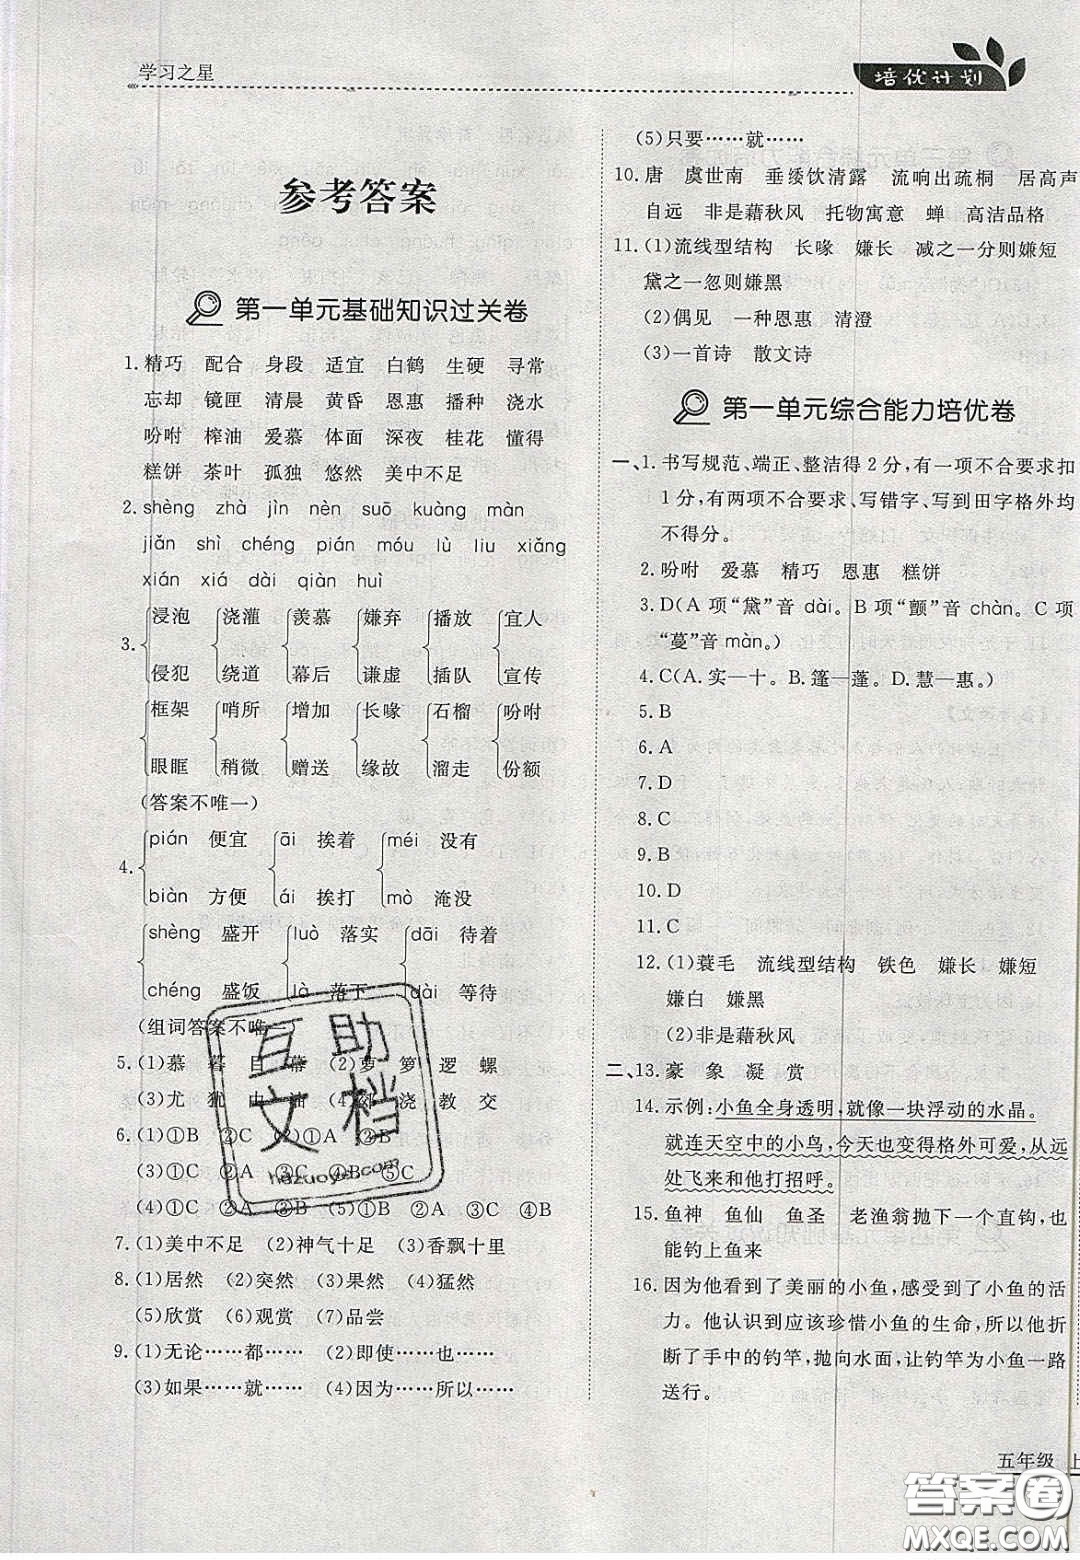 学习之星
培优计划
参考答案
第一单元基础知识过关卷
1.精巧 配合 身段 适宜 白鹤 生硬 寻常
忘却 镜匣 清晨 黄昏 恩惠 播种 浇水
吩咐 榨油 爱慕 体面 深夜 桂花 懂得
糕饼 茶叶 孤独 悠然 美中不足
2. shèng zhà jìn nèn suō kuàng màn
jiǎn shì chéng pián móu lù liu xiǎng
xián xiá dài qiàn huì
浸泡 浇灌 羡慕 嫌弃 播放 宜人
3.
侵犯 绕道 幕后 谦虚 插队 宣传
框架 哨所 增加 长喙 石榴 吩咐
眼眶 稍微 赠送 缘故 溜走 份额
(答案不唯一)
pián 便宜 āi 挨着 méi 没有
4.
biàn 方便 ái 挨打 mò 淹没
shèng 盛开 luò 落实 dāi 待着
chéng 盛饭 là 落下 dài 等待
(组词答案不唯一)
5.(1)慕 暮 目 幕 (2)萝 箩 逻 螺
(3)尤 犹 由 油 (4)郊 浇 教 交
6.(1)①B ②C (2)①A ②B
(3)①C ②A ③C ④B ⑤C
(4)①C ②A ③B (5)①C ②A ③B
7.(1)美中不足 (2)神气十足 (3)香飘十里
8.(1)居然 (2)突然 (3)果然 (4)猛然
(5)欣赏 (6)观赏 (7)品尝
9.(1)无论……都…… (2)即使……也……
(3)如果……就…… (4)因为……所以……
(5)只要……就……
10.唐 虞世南 垂緌饮清露 流响出疏桐 居高声
自远 非是藉秋风 托物寓意 蝉 高洁品格
11.(1)流线型结构 长喙 嫌长 减之一分则嫌短
黛之一忽则嫌黑
(2)偶见 一种恩惠 清澄
(3)一首诗 散文诗
第一单元综合能力培优卷
一、1.书写规范、端正、整洁得2分,有一项不合要求扣
1分,有两项不合要求、写错字、写到田字格外均
不得分。
2.吩咐 爱慕 精巧 恩惠 糕饼
3.D(A项“黛”音dài。B项“颤”音chàn。C项
“蔓”音màn。)
4.C(A.实—十。B.篷—蓬。D.慧—惠。)
5.B
6.A
7.D
8.C
9.B
10.D
11.C
12.(1)蓑毛 流线型结构 铁色 嫌长 嫌短
嫌白 嫌黑
(2)非是藉秋风
二、13.豪 象 凝 赏
14.示例:小鱼全身透明,就像一块浮动的水晶。
就连天空中的小鸟,今天也变得格外可爱,从远
处飞来和他打招呼。
15.鱼神 鱼仙 鱼圣 老渔翁抛下一个直钩,也
能钓上鱼来
16.因为他看到了美丽的小鱼,感受到了小鱼的活
力。他认识到应该珍惜小鱼的生命,所以他折
断了手中的钓竿,抛向水面,让钓竿为小鱼一路
送行。
五年级 上
互助
文档
hezuoye.com
答案圈
MXQE.COM